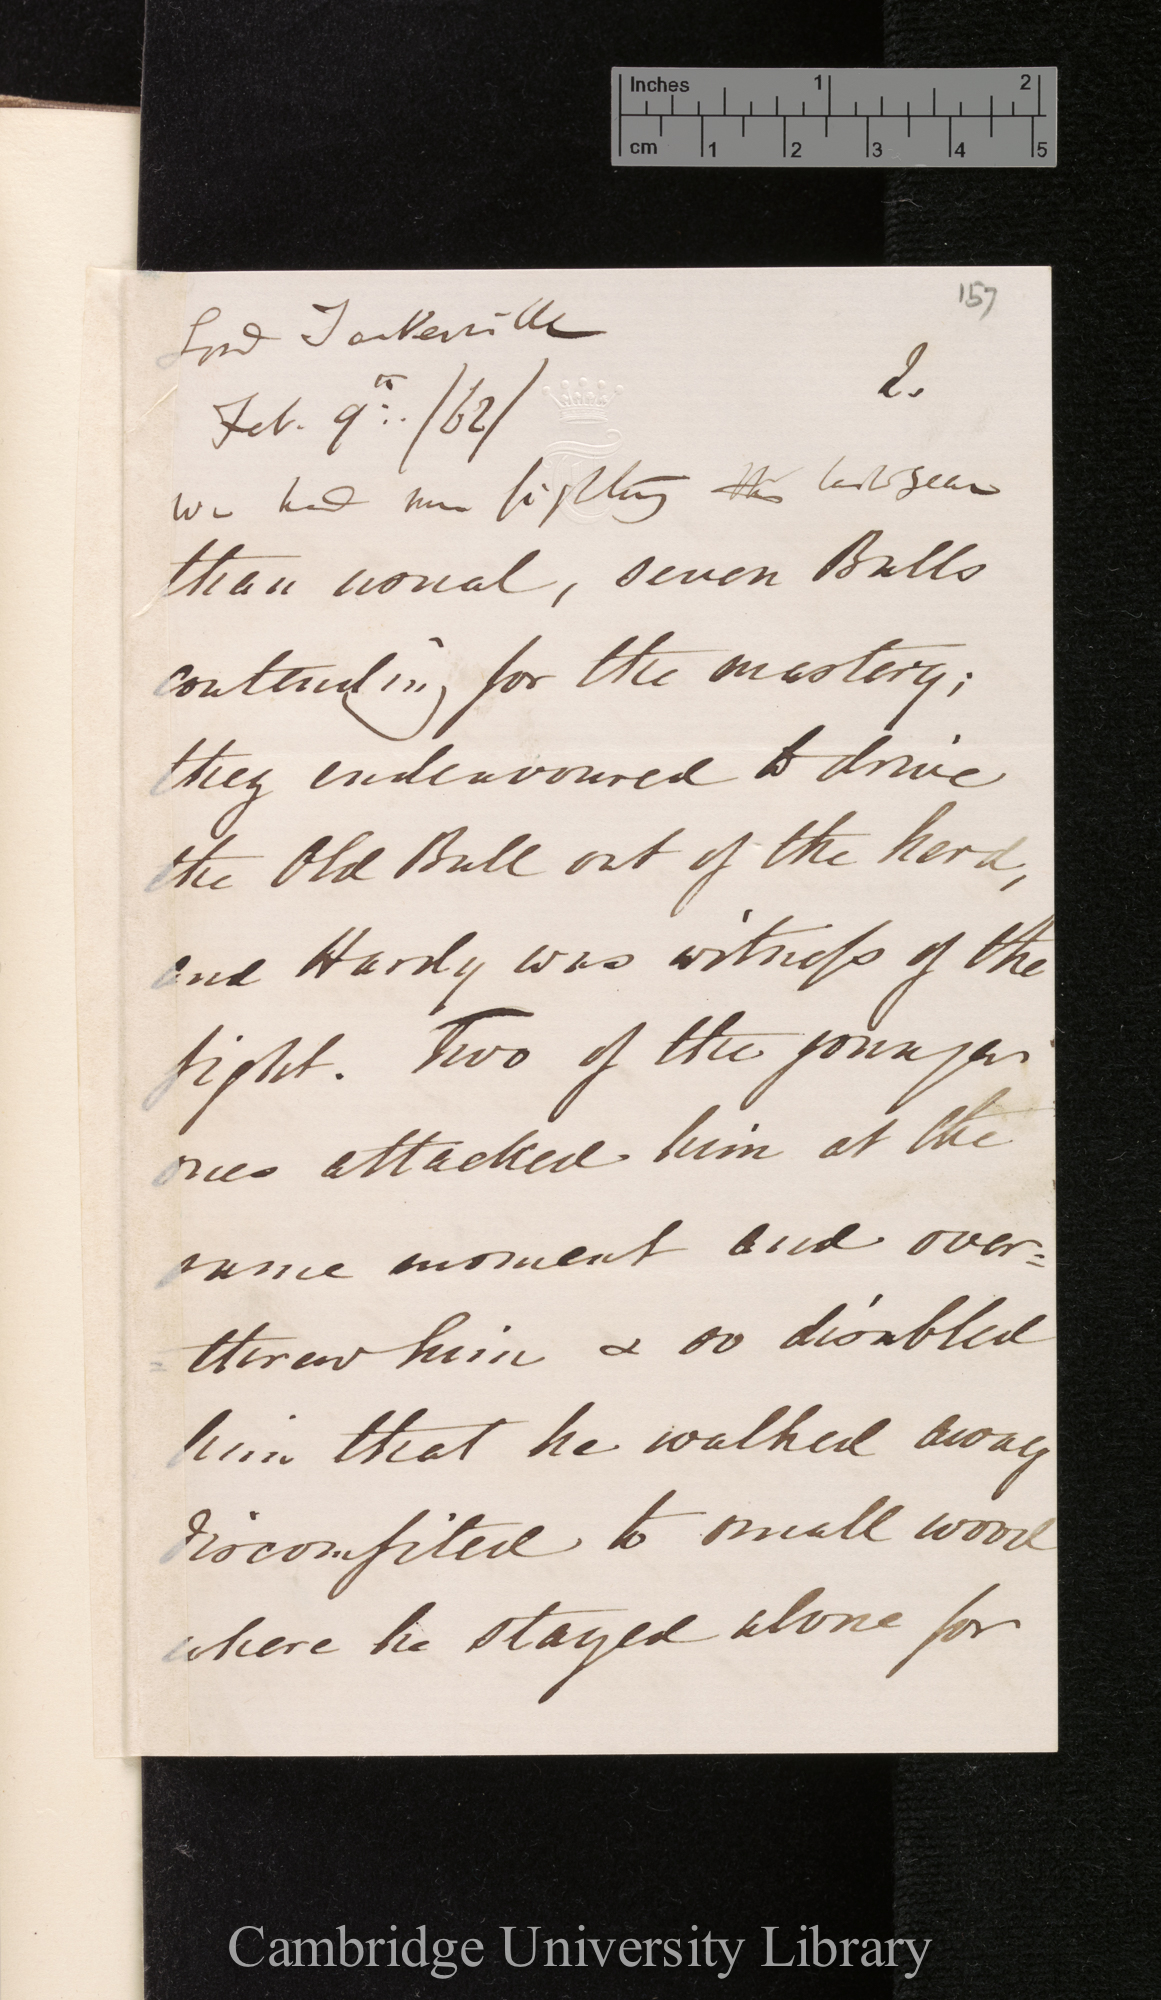 Inches 1 2
cm 1 2 3 4 5
157
Lord Tankerville
2.
Feb. 9th. /62/
we had more fighting this last year
than usual, seven Bulls
contending for the mastery;
they endeavoured to drive
the Old Bull out of the herd,
and Hardy was witness of the
fight. Two of the younger
ones attacked him at the
same moment and over=
=threw him & so disabled
him that he walked away
discomfited to small wood
where he stayed alone for
Cambridge University Library